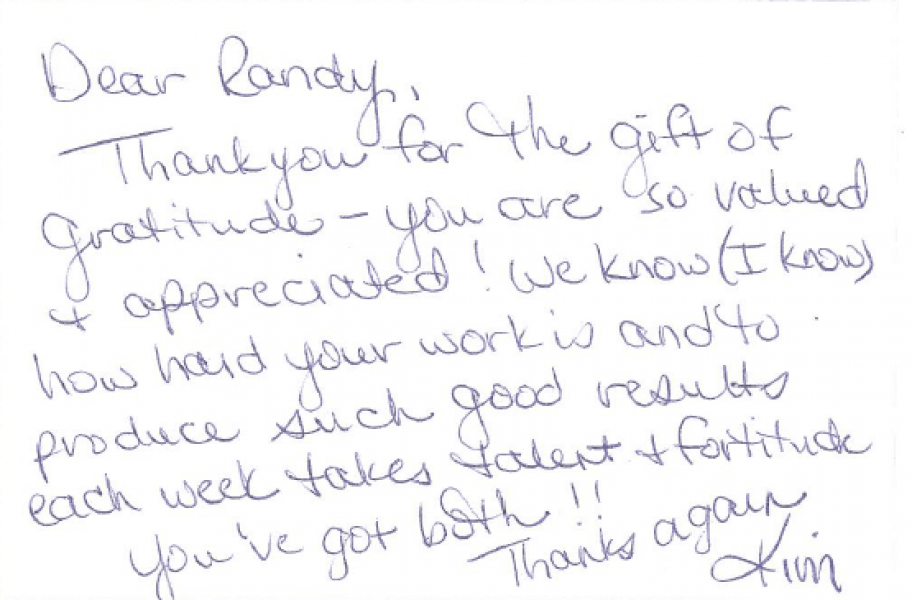 Dear Randy,
Thank you for the gift of
gratitude - you are so valued
+ appreciated! We know (I know)
how hard your work is and to
produce such good results
each week takes talent + fortitude
You've got both!!
Thanks again
Kim